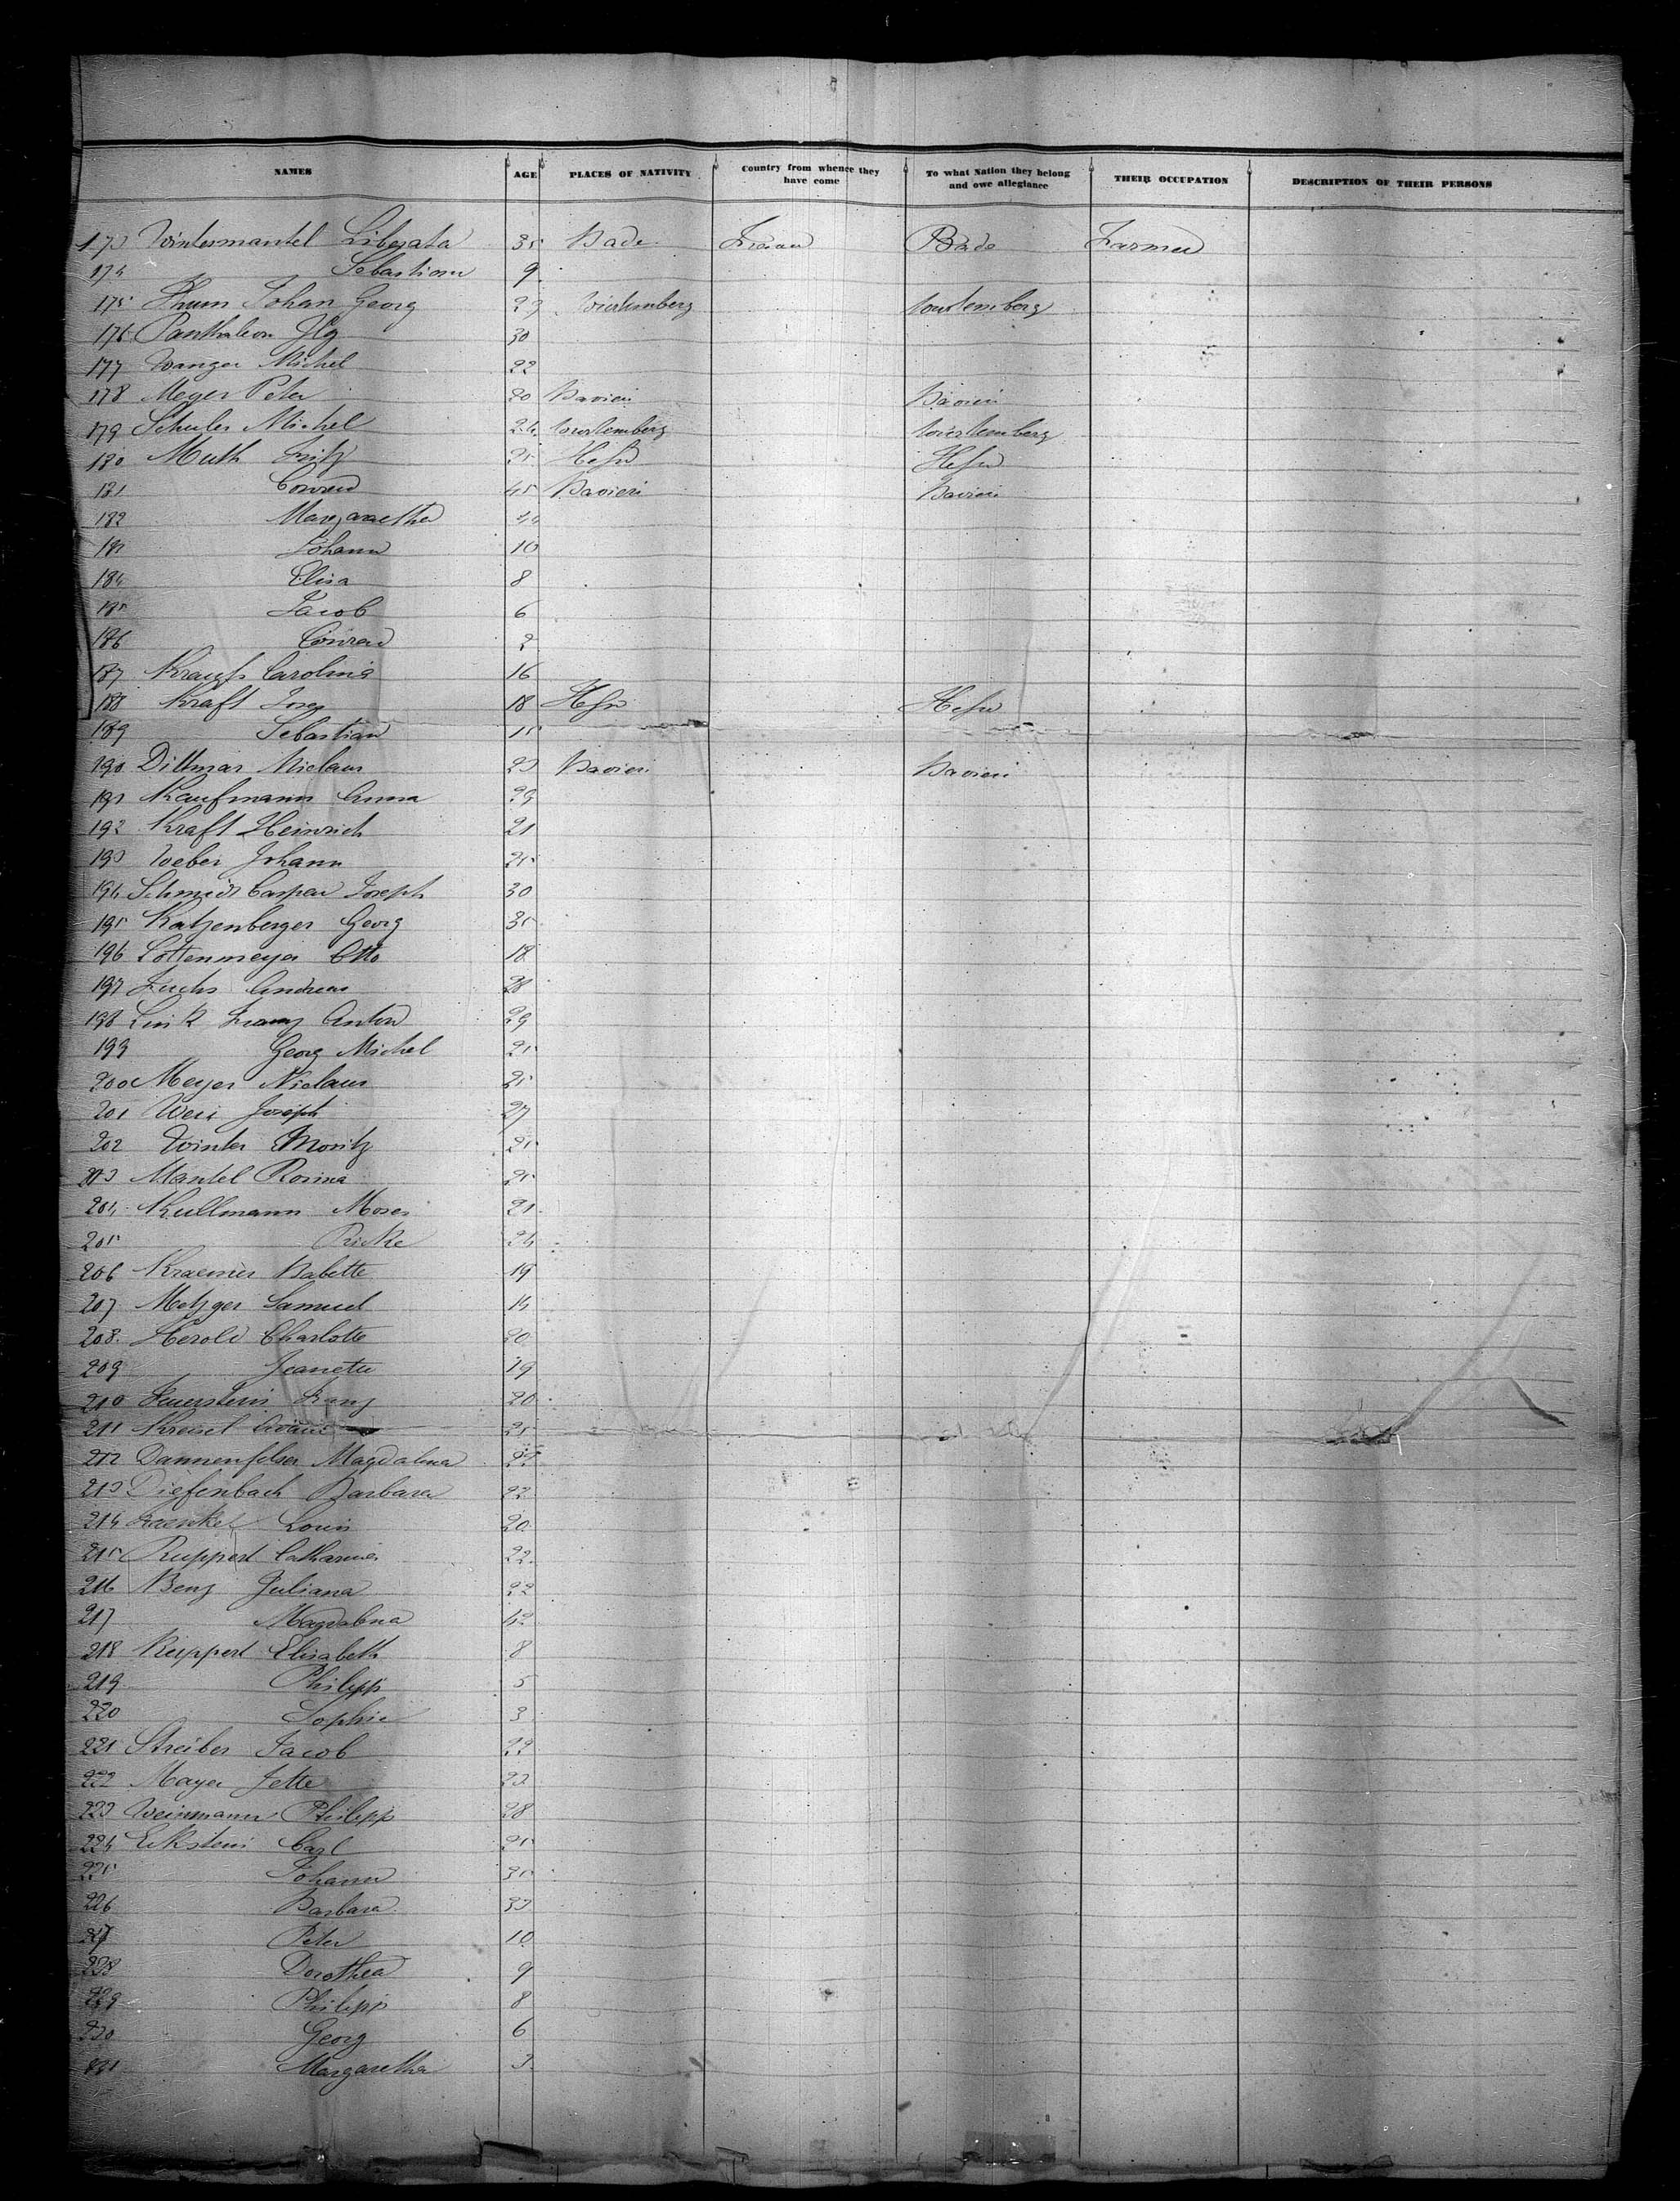 NAMES AGE PLACES OF NATIVITY Country from whence they have come To what Nation they belong and owe allegiance THEIR OCCUPATION DESCRIPTION OF THEIR PERSONS
173 Wintermantel Liberata 35 Bade Bade Farmer
174 Sebastian 9
175 Johan Georg 23 Wurtemberg Wurtemberg
176 Panthaleon Ilg 30
177 Wanger Michel 22
178 Meyer Peter 20 Bavieri Bavieri
179 Schuler Michel 24 Wurtemberg Wurtemberg
180 Muth Fritz 25 Hesse Hesse
181 Conrad 45 Bavieri Bavieri
182 Margaretha 44
183 Johann 10
184 Elisa 8
185 Jacob 6
186 Conrad 2
187 Krauss Carolina 16
188 Kraft 18 Hesse Hesse
189 Sebastian 15
190 Dittmar Niclaus 23 Bavieri Bavieri
191 Kaufmann Anna 29
192 Kraft Heinrich 21
193 Weber Johann 25
194 Schmidt Caspar Joseph 30
195 Katzenberger Georg 35
196 Lottenmeyer Otto 18
197 Fuchs Andreas 28
198 Link Franz Anton 29
199 Georg Michel 25
200 Meyer Niclaus 25
201 Joseph 27
202 Winter Moritz 25
203 Mantel Rosina 25
204 Kullmann Moses 21
205 Ricke 24
206 Kraemer Babette 19
207 Metzger Samuel 14
208 Herold Charlotte 20
209 Jeanette 19
210 Feuerstein Franz 20
211 Kreisel 25
212 Dannenfelser Magdalena 22
213 Diefenbach Barbara 22
214 Fraenkel Louis 20
215 Ruppert Catharina 22
216 Benz Juliana 22
217 Magdalena 42
218 Ruppert Elisabeth 8
219 Philipp 5
220 Sophie 3
221 Streiber Jacob 22
222 Mayer Jette 23
223 Weinmann Philipp 28
224 Ekstein Carl 25
225 Johann 35
226 Barbara 33
227 Peter 10
228 Dorothea 9
229 Philipp 8
230 Georg 6
231 Margaretha 3